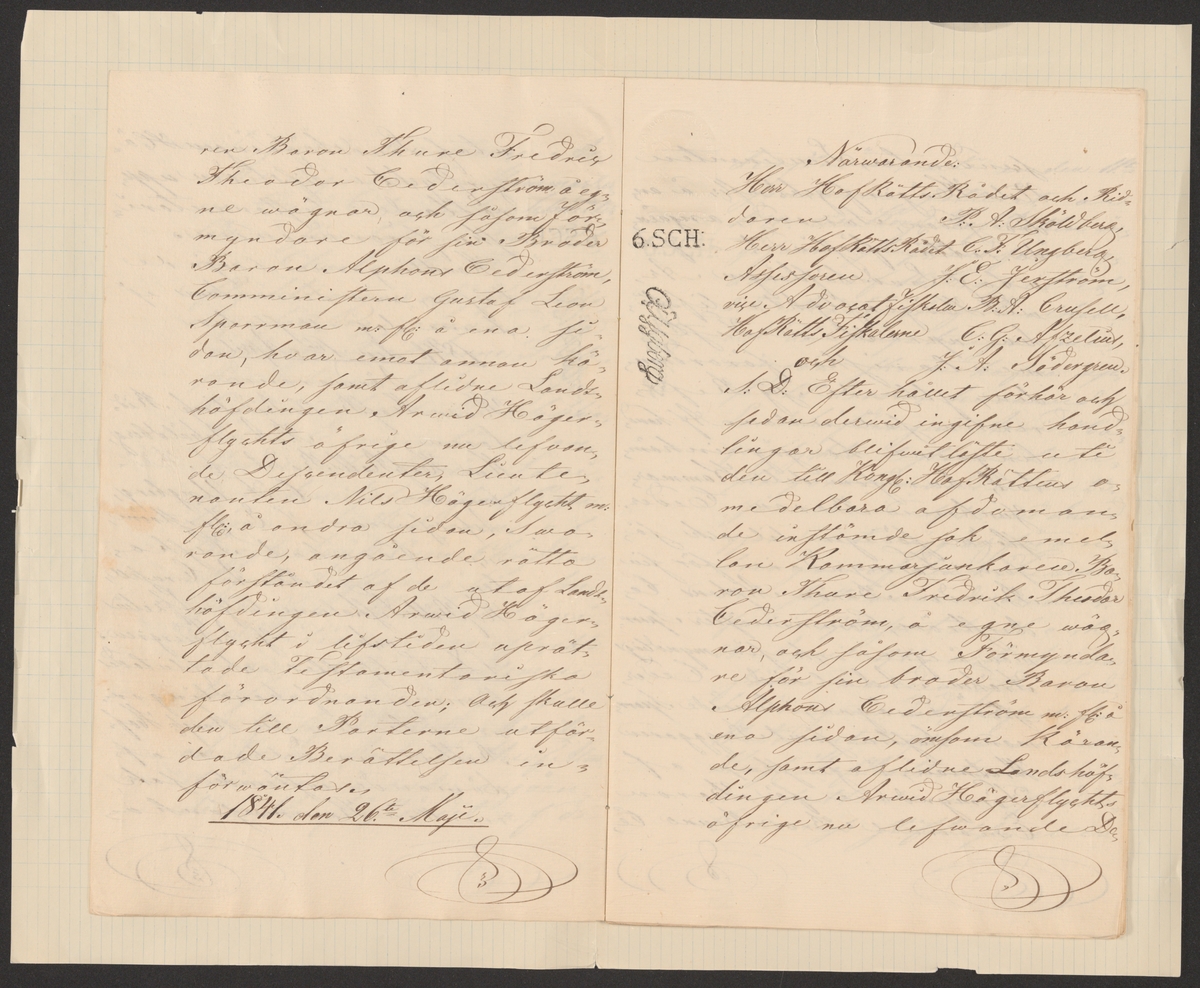 ren Baron Thure Fredric
Theodor Cederström å eg-
ne wägnar och såsom För-
myndare för sin Broder
Baron Alphons Cederström,
Comministern Gustaf Leon
Sparrman m: fl: å ena si-
dan, hvar emot annan kä-
rande, samt aflidne Lands-
höfdingen Arwid Höger-
flychts öfrige nu lefvan-
de Descendenter, Lieute-
nanten Nils Högerflycht m:
fl:, å andra sidan, Swa-
rande, angående rätta
förståndet af de utaf Lands-
höfdingen Arwid Höger-
flycht i lifstiden uprät-
tade Testamentariska
förordnanden; Och skulle
den till Parterne utfär-
dade Berättelsen in-
förwäntas.
1841. den 26:te Maji.
6.SCH:
Närwarande:
Herr HofRätts Rådet och Rid-
daren P. A. Sköldberg,
Herr HofRätts Rådet C. J. Ungberg,
Assessoren J. E. Jerström,
vice Advocat Fiskalen B. A: Crusell,
HofRätts Fiskalerne C. G: Afzelius,
och J. A. Södergren.
S: D: Efter hållet förhör och
sedan derwid ingifne hand-
lingar blifvit läste uti
den till Kongl: HofRättens o-
medelbara afdöman-
de instämde sak emel-
lan Kammarjunkaren, Ba-
ron Thure Fredrik Theodor
Cederström, å egne wäg-
nar, och såsom Förmynda-
re för sin broder Baron
Alphons Cederström m: fl: å
ena sidan, ömsom Käran-
de, samt aflidne Landshöf-
dingen Arwid Högerflychts
öfrige nu lefwande De-